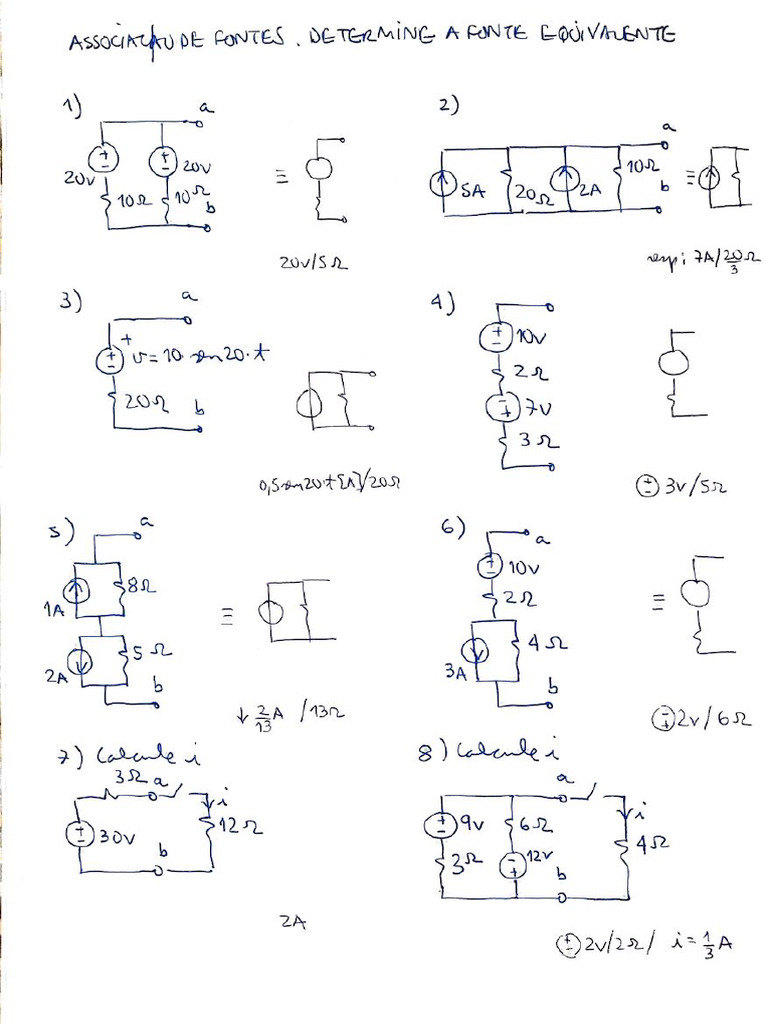 ASSOCIAÇÃO DE FONTES. DETERMINE A FONTE EQUIVALENTE
1)
a
20V
20V
10Ω
10Ω
b
≡
20V/5Ω
2)
a
5A
20Ω
2A
10Ω
b
≡
resp: 7A/20/3 Ω
3)
a
+
v = 10 sen 20·t
20Ω
b
0,5 sen 20t [A]/20Ω
4)
10V
2Ω
7V
3Ω
3V/5Ω
5)
a
1A
8Ω
2A
5Ω
b
≡
↓ 2/13 A /13Ω
6)
a
10V
2Ω
3A
4Ω
b
≡
2V/6Ω
7) Calcule i
3Ω a
i
30V
12Ω
b
2A
8) Calcule i
a
i
9V
6Ω
4Ω
3Ω
12V
b
2V/2Ω/ i = 1/3 A